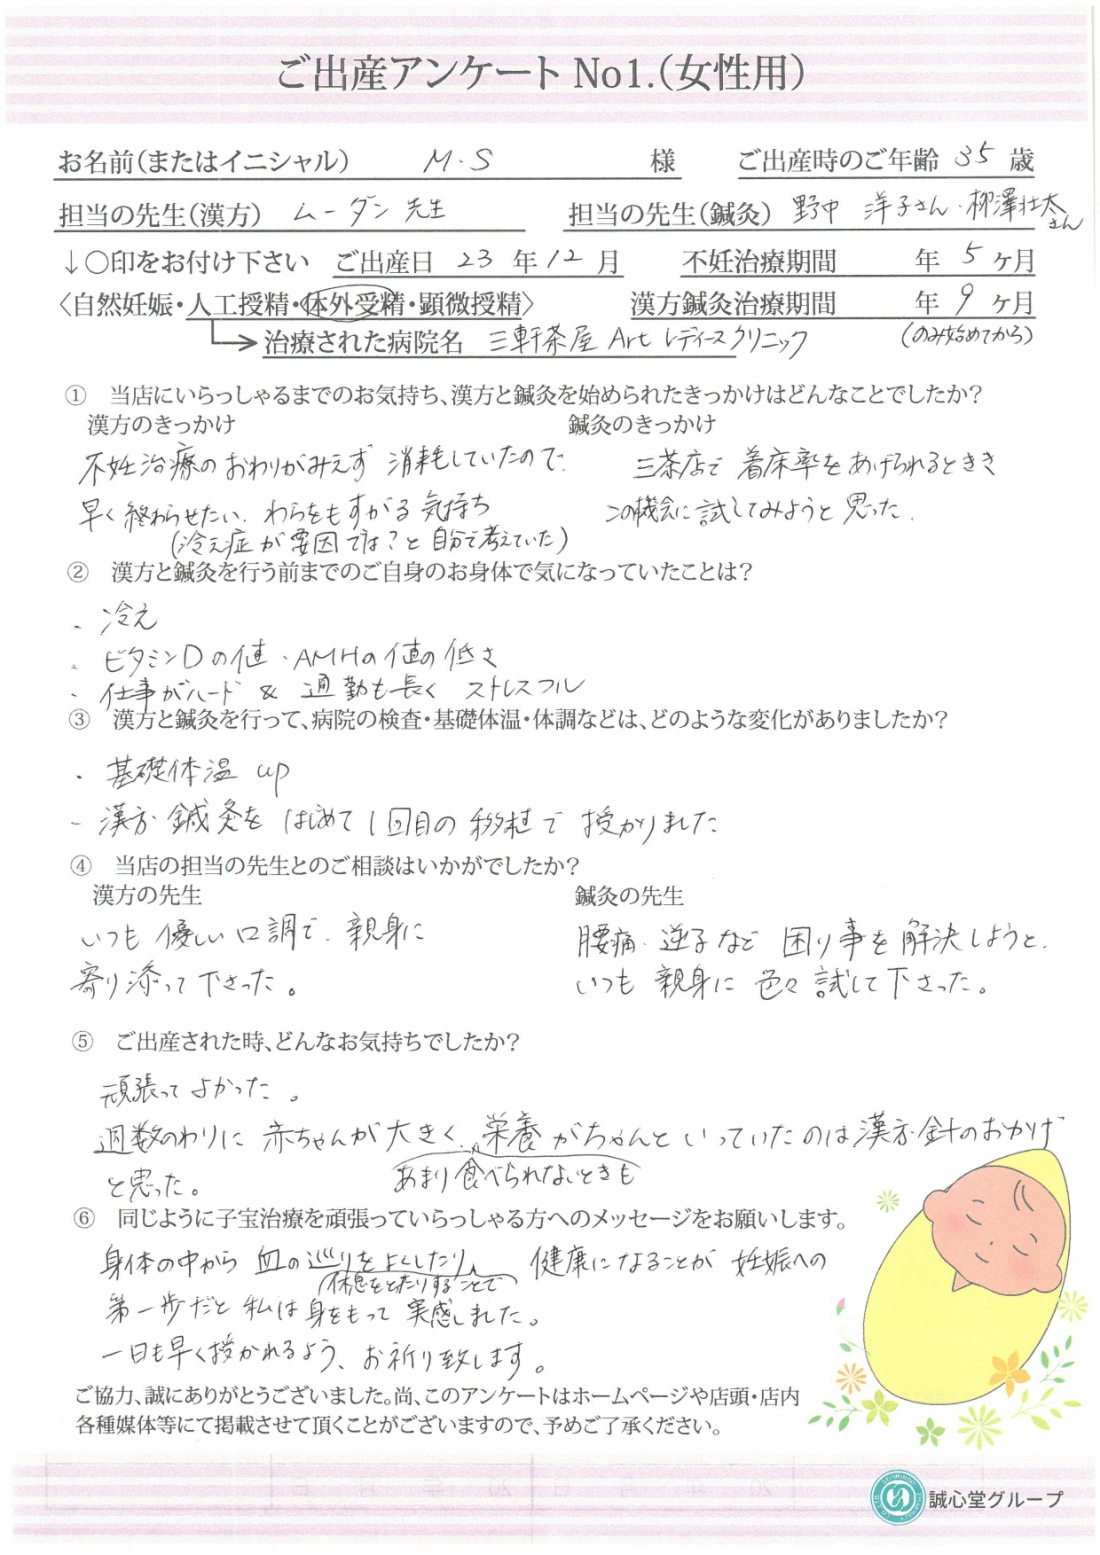 ご出産アンケート No1.(女性用)
お名前(またはイニシャル) M.S 様 ご出産時のご年齢 35 歳
担当の先生(漢方) ムーダン 先生 担当の先生(鍼灸) 野中 洋子さん・柳澤壮太さん
↓○印をお付け下さい ご出産日 23 年 12 月 不妊治療期間 年 5 ヶ月
〈自然妊娠・人工授精・体外受精・顕微授精〉 漢方鍼灸治療期間 年 9 ヶ月
治療された病院名 三軒茶屋 Art レディースクリニック (のみ始めてから)
① 当店にいらっしゃるまでのお気持ち、漢方と鍼灸を始められたきっかけはどんなことでしたか?
漢方のきっかけ 鍼灸のきっかけ
不妊治療のおわりがみえず 消耗していたので、 三茶店で 着床率をあげられるときき
早く終わらせたい、わらをもすがる気持ち この機会に試してみようと思った。
(冷え症が要因では?と自分で考えていた)
② 漢方と鍼灸を行う前までのご自身のお身体で気になっていたことは?
・冷え
・ビタミンDの値・AMHの値の低さ
・仕事がハード & 通勤も長く ストレスフル
③ 漢方と鍼灸を行って、病院の検査・基礎体温・体調などは、どのような変化がありましたか?
・基礎体温 up
・漢方・鍼灸を はじめて1回目の移植で 授かりました
④ 当店の担当の先生とのご相談はいかがでしたか?
漢方の先生 鍼灸の先生
いつも 優しい口調で、親身に 腰痛、逆子など 困り事を解決しようと、
寄り添って下さった。 いつも 親身に 色々試して下さった。
⑤ ご出産された時、どんなお気持ちでしたか?
頑張ってよかった。
週数のわりに 赤ちゃんが大きく、栄養がちゃんといっていたのは漢方・針のおかげ
と思った。 あまり食べられないときも
⑥ 同じように子宝治療を頑張っていらっしゃる方へのメッセージをお願いします。
身体の中から 血の巡りをよくしたり、 健康になることが 妊娠への
休息をとたりすることで
第一歩だと 私は身をもって実感しました。
一日も早く授かれるよう、お祈り致します。
ご協力、誠にありがとうございました。尚、このアンケートはホームページや店頭・店内
各種媒体等にて掲載させて頂くことがございますので、予めご了承ください。
誠心堂グループ